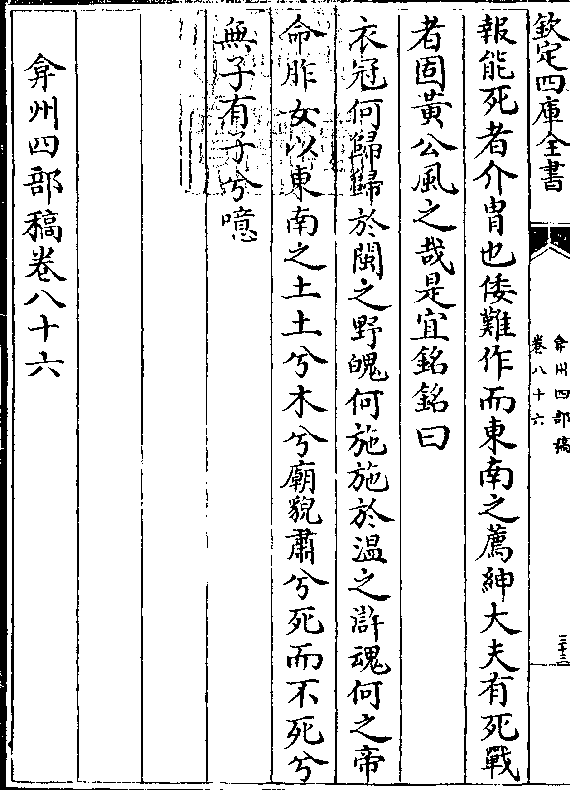 欽定四庫全書
弇州四部稿
卷八十六
三十三
報能死者介胄也倭難作而東南之薦紳大夫有死戰
者固黃公風之哉是宜銘銘曰
衣冠何歸歸於閩之野魄何施施於溫之滸魂何之帝
命胙女以東南之土土兮木兮廟貌肅兮死而不死兮
無子有子兮噫
弇州四部稿卷八十六